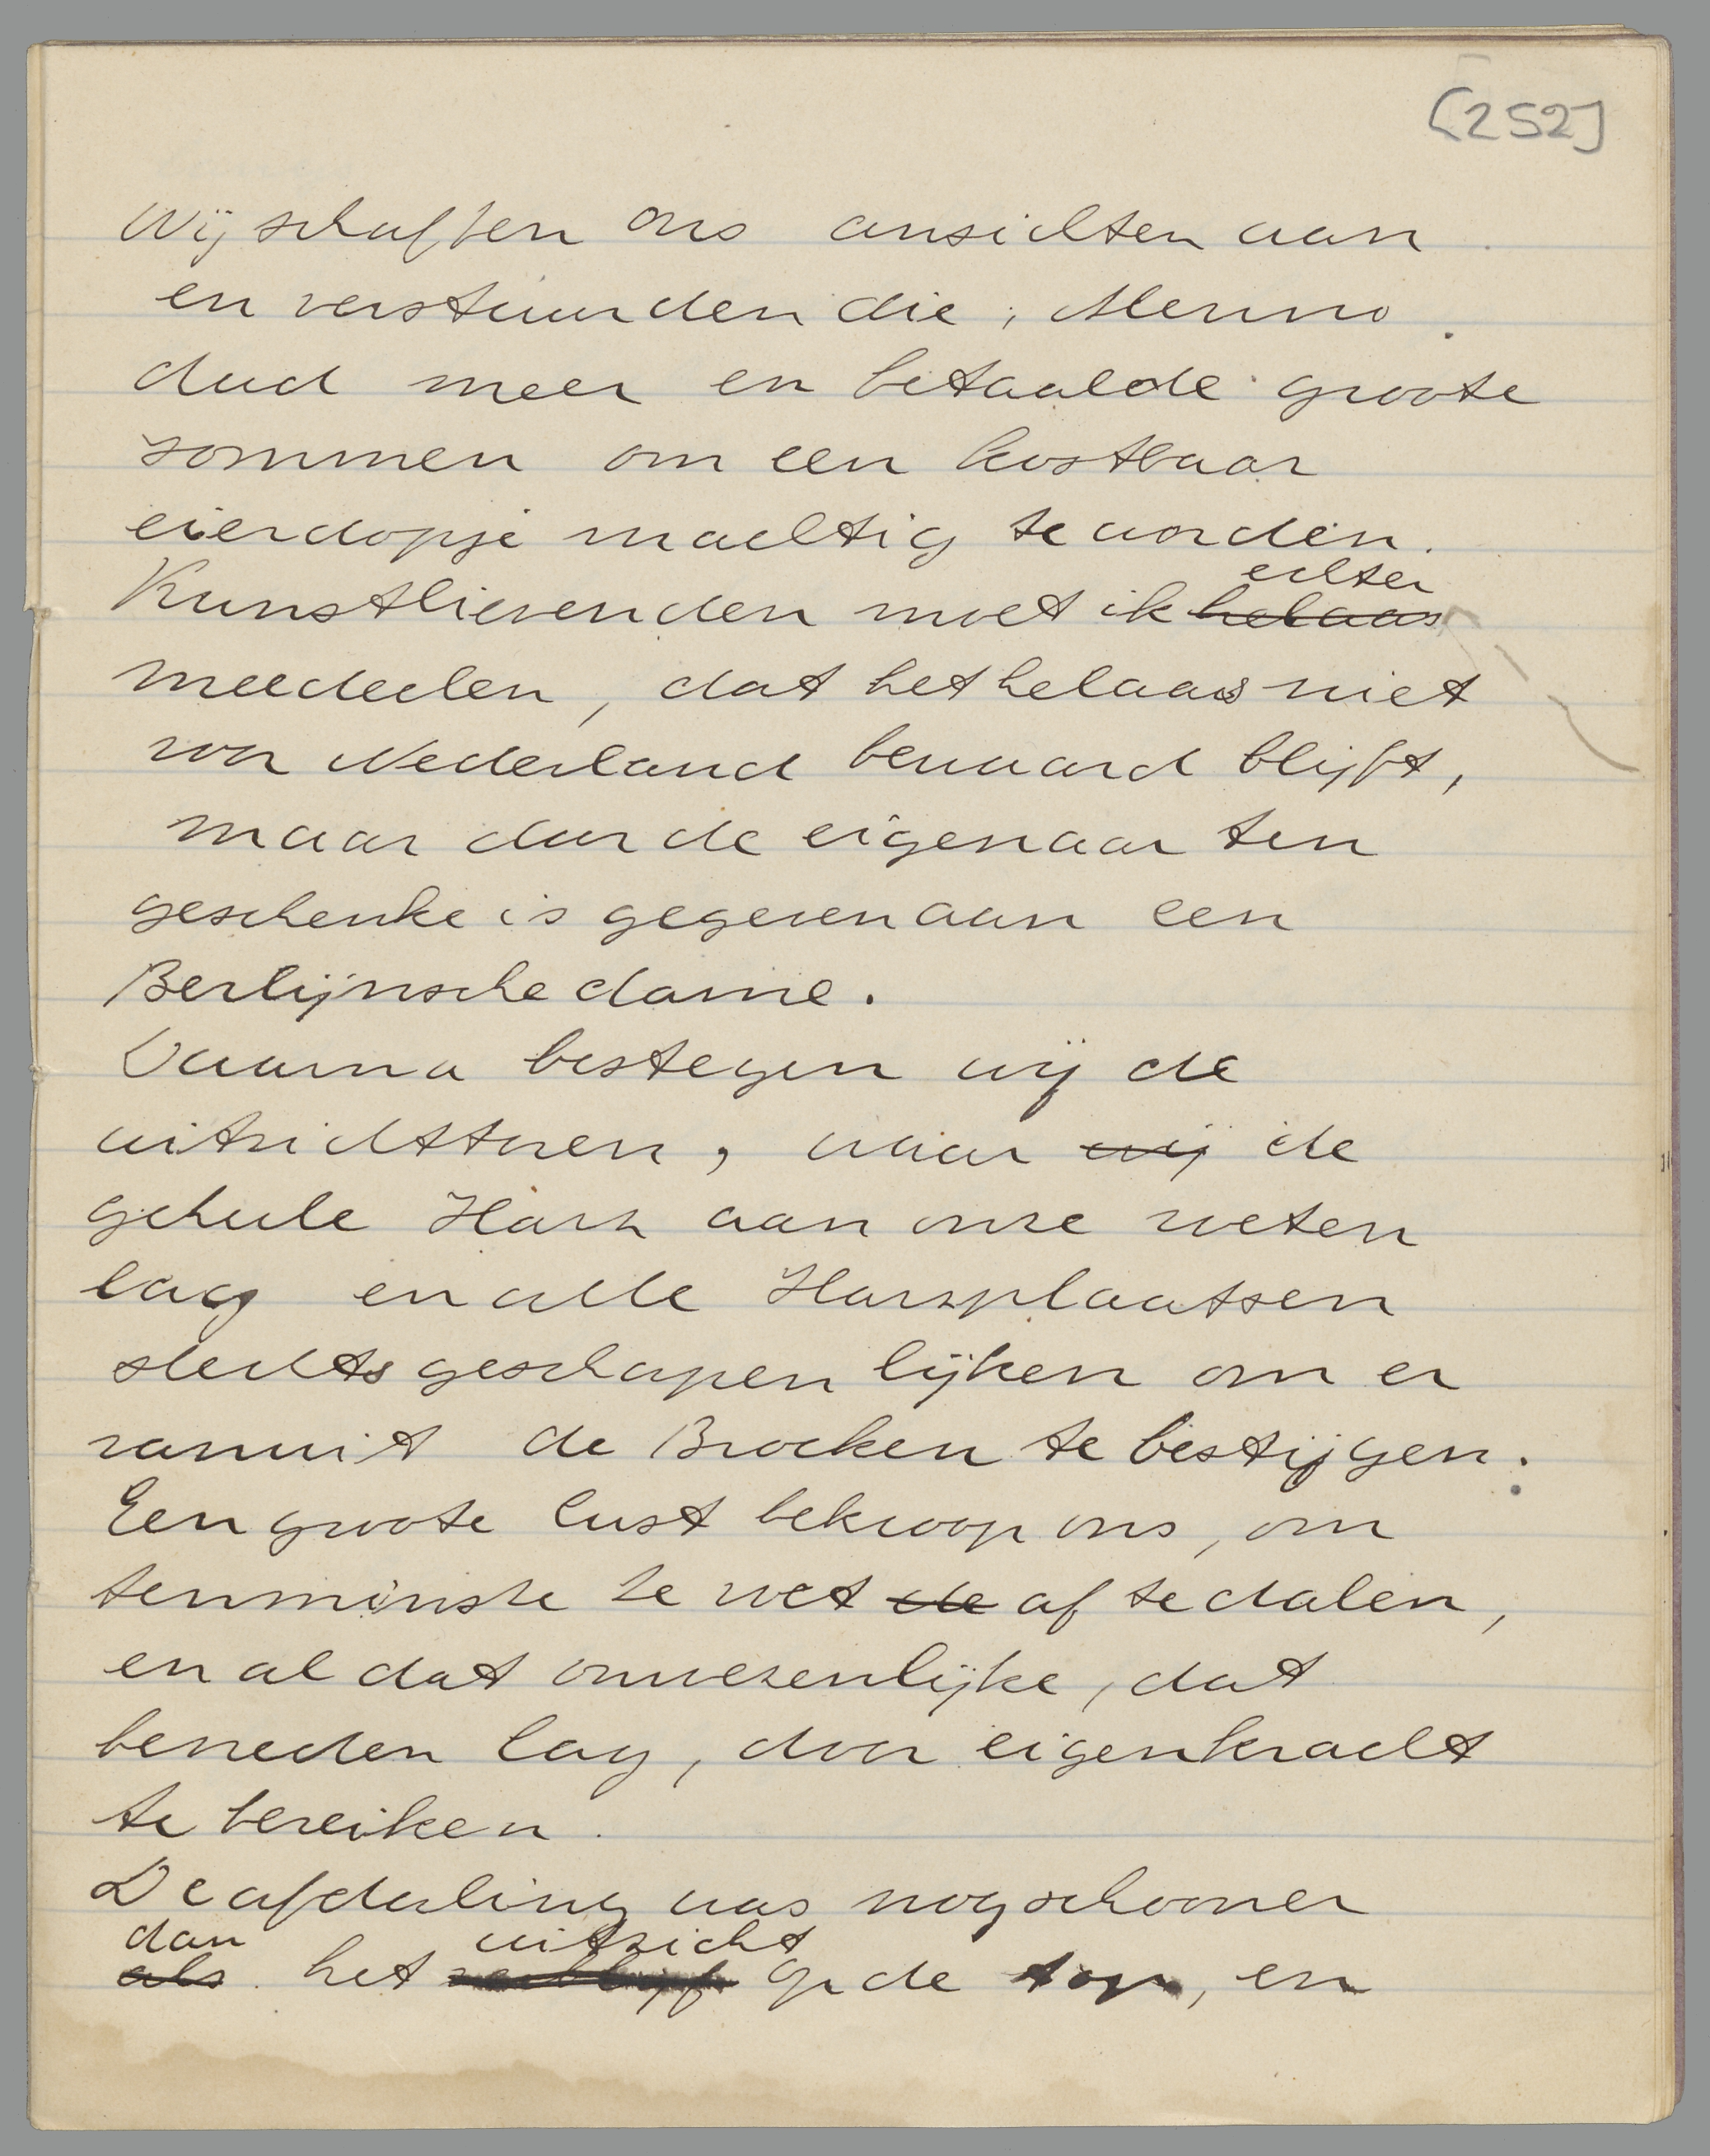 [252]
Wij schaften ons ansichten aan
en verstuurden die; Menno
deed meer en betaalde groote
sommen om een kostbaar
eierdopje machtig te worden.
echter
Kunstlievenden moet ik helaas
meedeelen, dat het helaas niet
voor Nederland bewaard blijft,
maar door de eigenaar ten
geschenke is gegeven aan een
Berlijnsche dame.
Daarna bestegen wij de
uitzichttoren, waar wij de
geheele Harz aan onze voeten
lag en alle Harzplaatsen
slechts geschapen lijken om er
vanuit de Brocken te bestijgen.
Een groote lust bekroop ons, om
tenminste te voet de af te dalen,
en al dat onwezenlijke, dat
beneden lag, door eigen kracht
te bereiken.
De afdaling was nog schooner
dan uitzicht
als het verblijf op de top, en